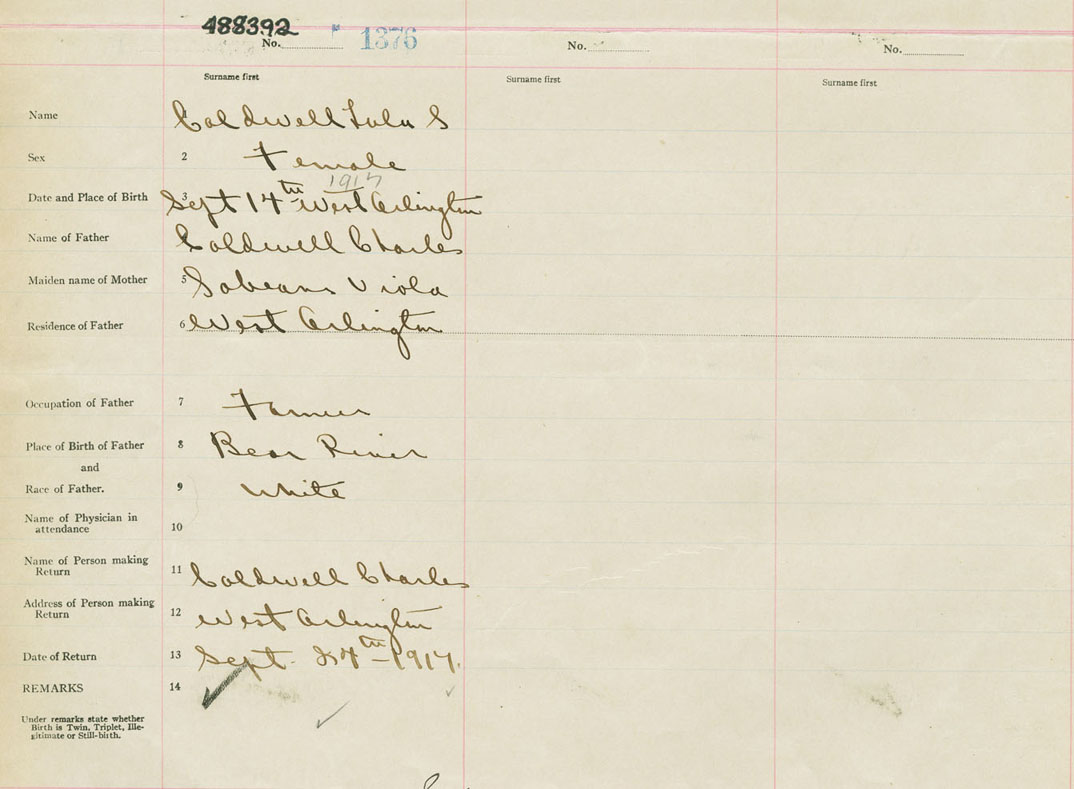 488392
No. 1376 No. No.
Surname first Surname first Surname first
Name Coldwell Lulu S
Sex 2 Female
1917
Date and Place of Birth 3 Sept 14th West Arlington
Name of Father Coldwell Charles
Maiden name of Mother 5 Sabeans Viola
Residence of Father 6 West Arlington
Occupation of Father 7 Farmer
Place of Birth of Father 8 Bear River
and
Race of Father. 9 White
Name of Physician in
attendance 10
Name of Person making
Return 11 Coldwell Charles
Address of Person making
Return 12 West Arlington
Date of Return 13 Sept. 27th - 1917.
REMARKS 14
Under remarks state whether
Birth is Twin, Triplet, Ille-
gitimate or Still-birth.